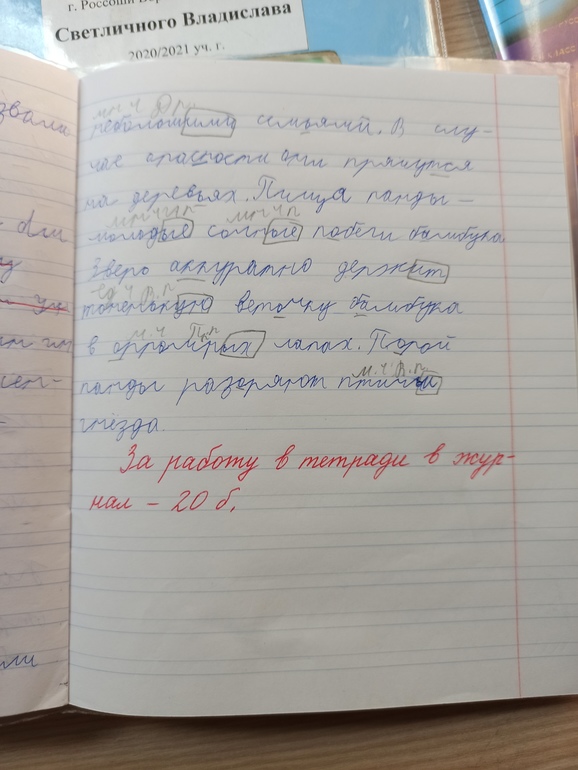 г. Россошь
Светличного Владислава
2020/2021 уч. г.
звали
мн ч
небольшими семьями. В слу-
чае опасности они прячутся
на деревьях. Пища панды –
мн ч И п мн ч п
молодые сочные побеги бамбука
Зверь аккуратно держит
ед ч В.п
тоненькую веточку бамбука
м. ч П.п
в огромных лапах. Порой
м. ч В.п.
панды разоряют птичьи
гнёзда.
За работу в тетради в жур-
нал – 20 б.